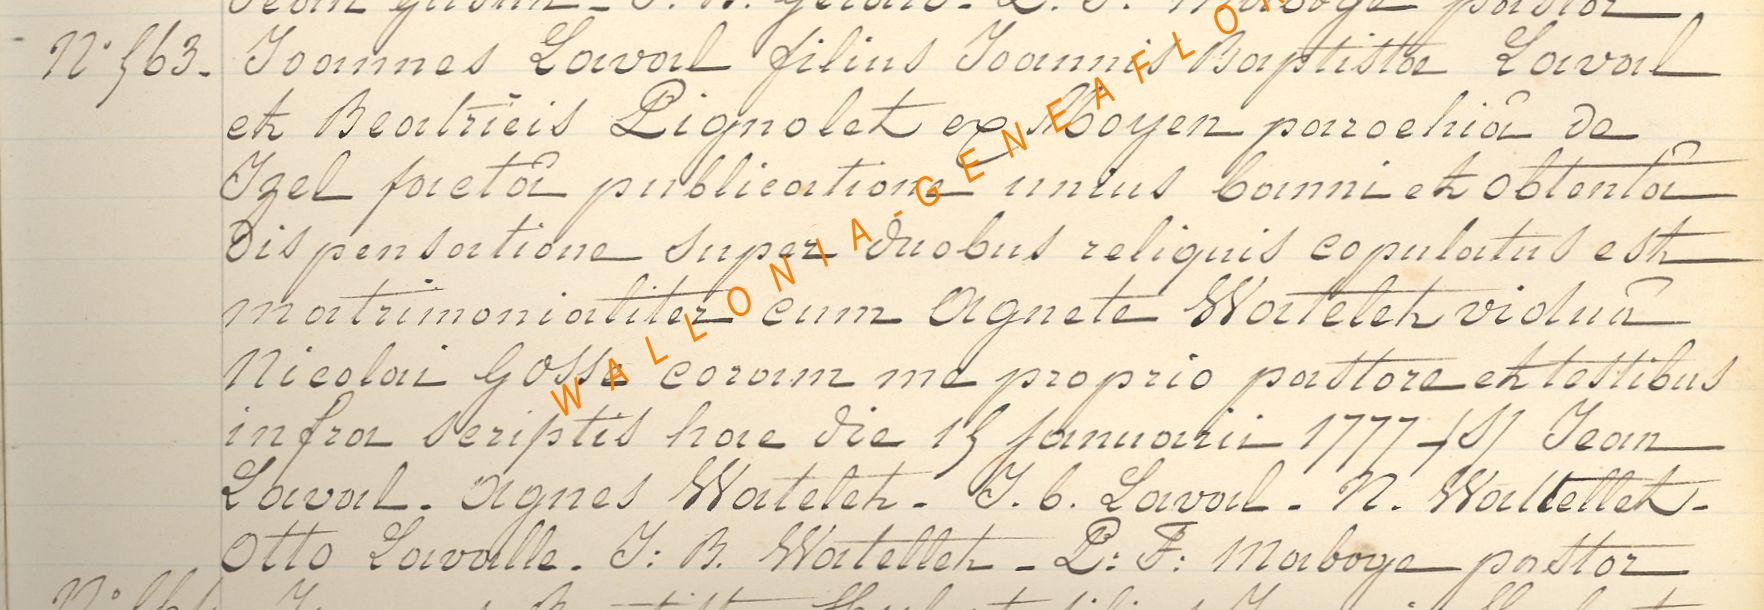 Jean - J. B. Gerard - P. F. Maboge pastor
N° 563. Joannes Laval filius Joannis Baptista Laval
et Beatricis Pignolet ex Moyen parochiâ de
Izel factâ publicatione unius banni et obtentâ
dispensatione super duobus reliquis copulatus est
matrimonialiter cum Agnete Watelet viduâ
Nicolai Gosse coram me proprio pastore et testibus
infra scriptis hac die 15 januarii 1777 - /S/ Jean
Laval. Agnes Watelet - J. b. Laval - N. Wattellet -
Otto Lavalle. J: B. Watellet - P: F: Maboge pastor
WALLONIA-GENEAFLO